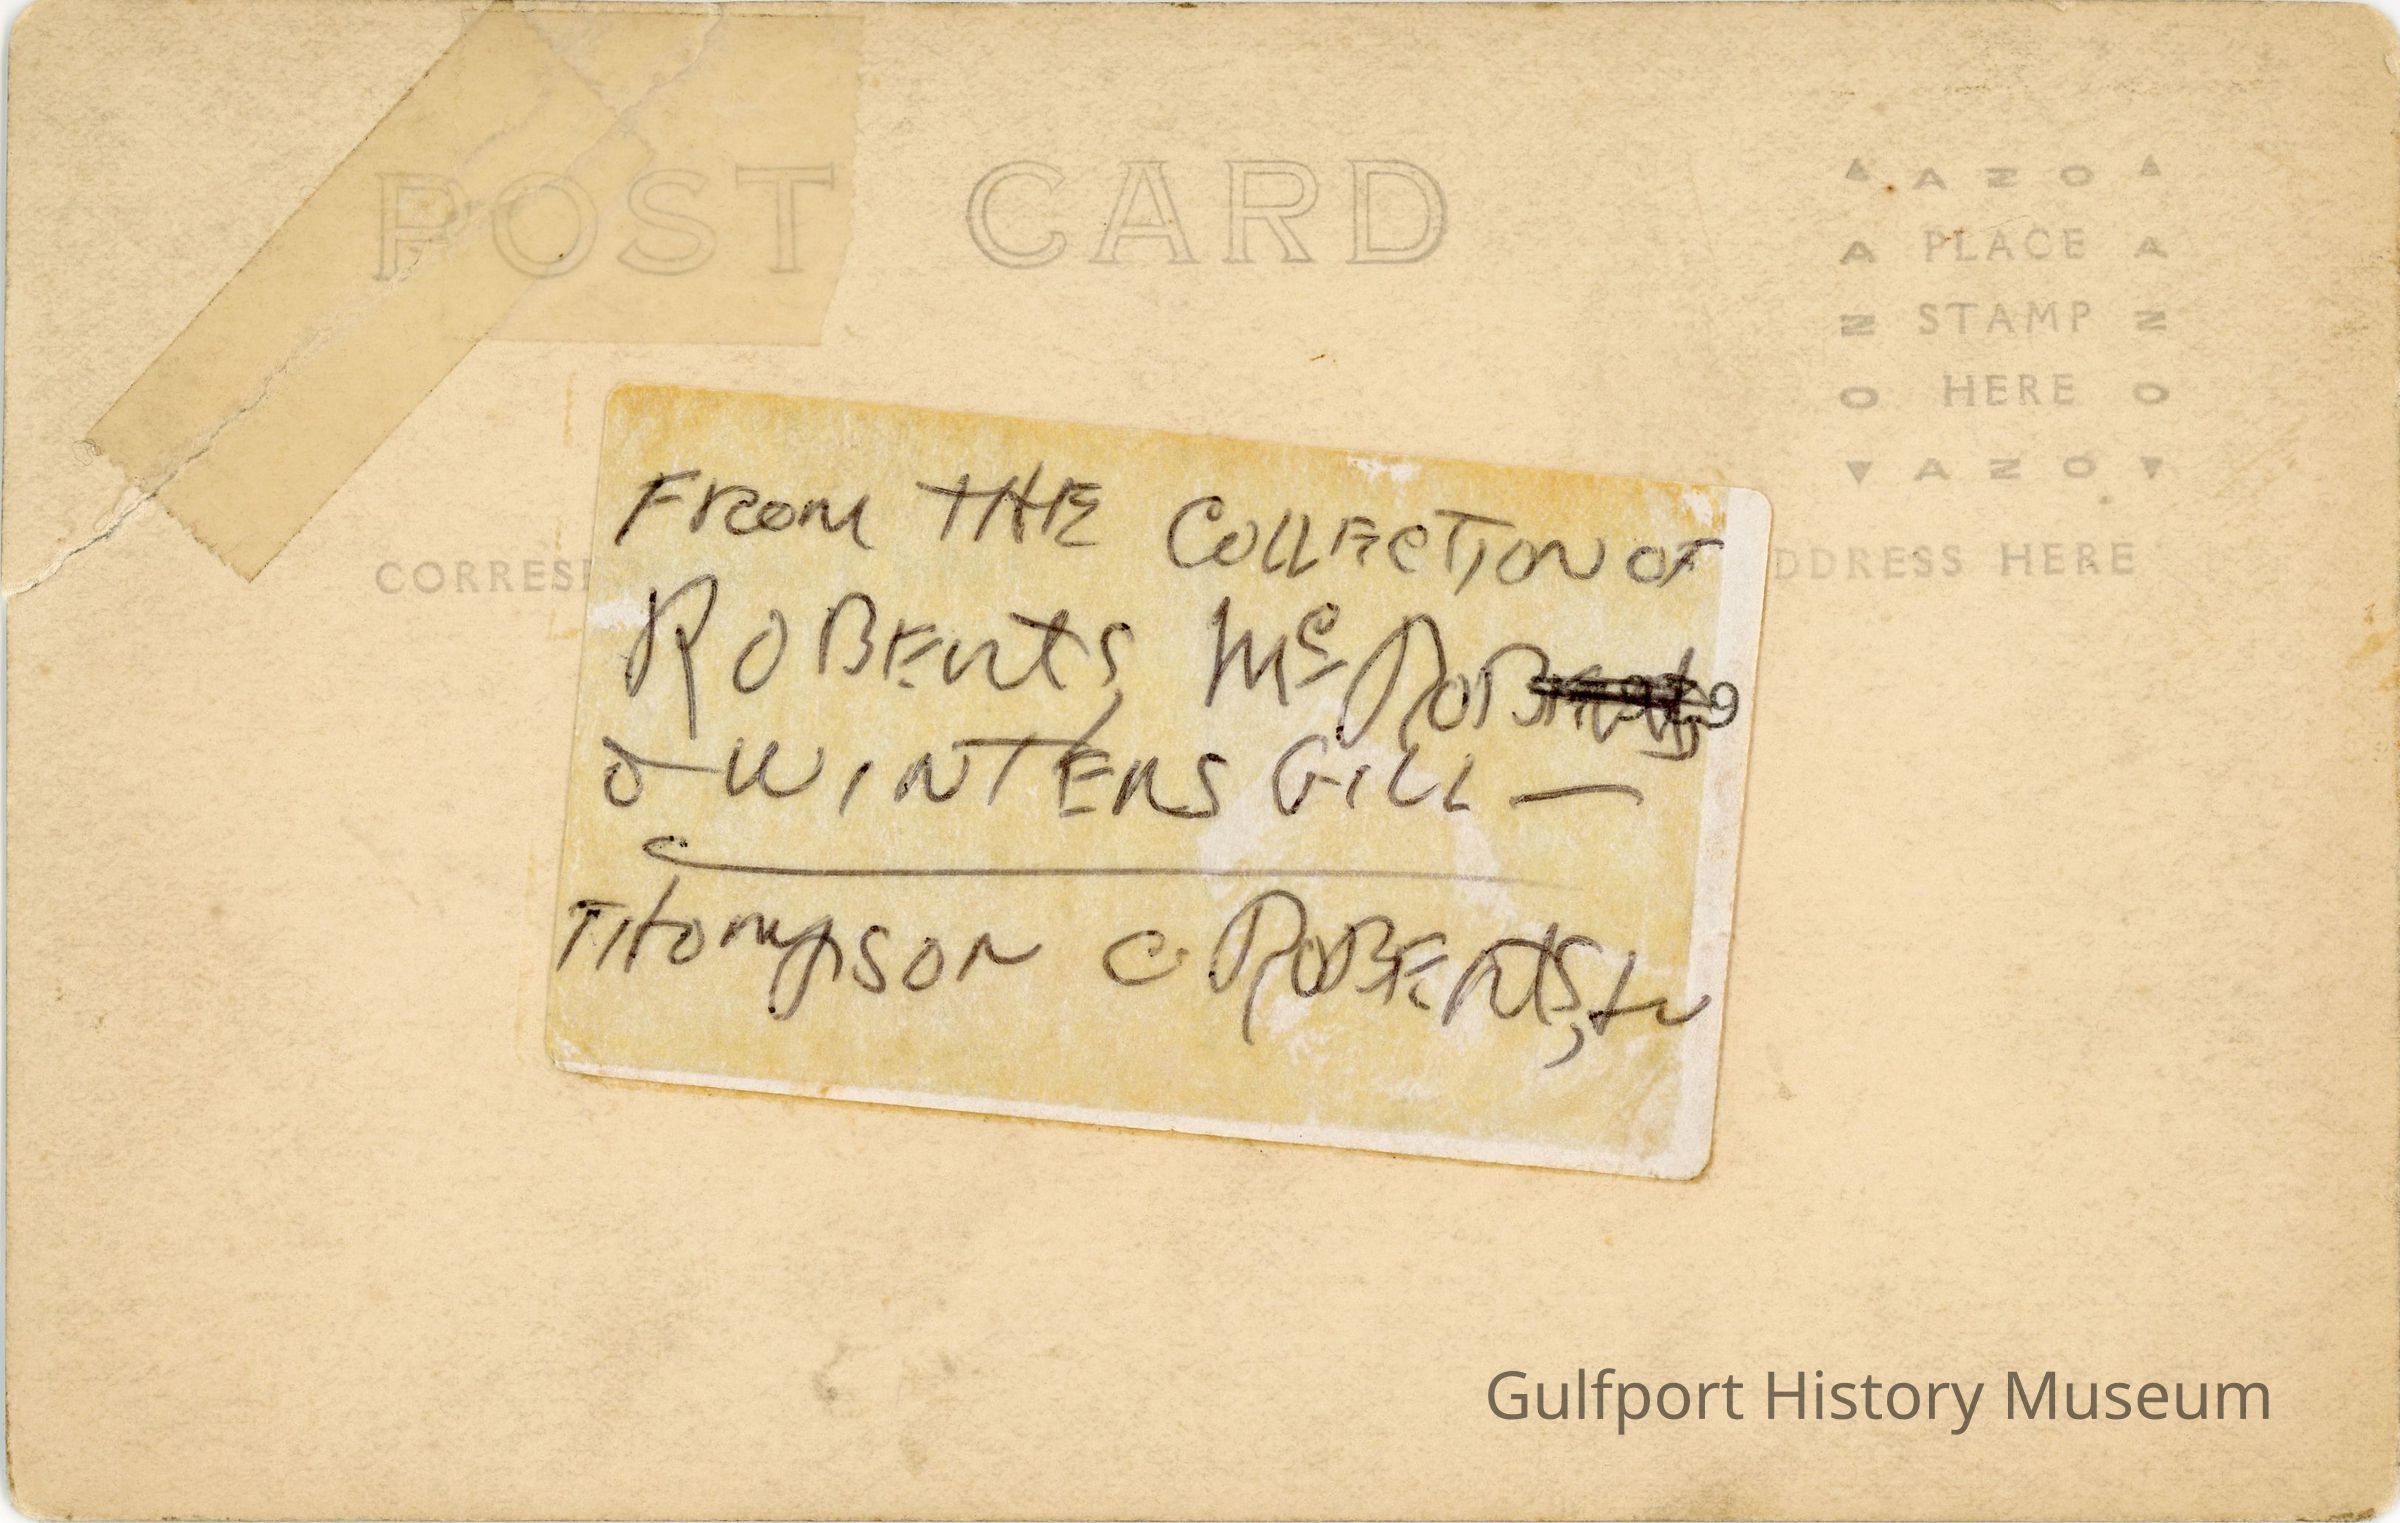 POST CARD
AZO
A PLACE A
N STAMP N
O HERE O
AZO
CORRES
DDRESS HERE
FROM THE COLLECTION OF
ROBERTS, Mc
& WINTERS GILL —
THOMPSON C ROBERTS,
Gulfport History Museum